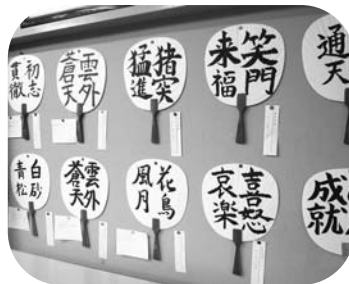 初志
貫徹
雲外
蒼天
猪突
猛進
笑門
来福
通
天
白砂
青松
雲外
蒼天
花鳥
風月
喜怒
哀楽
成
就